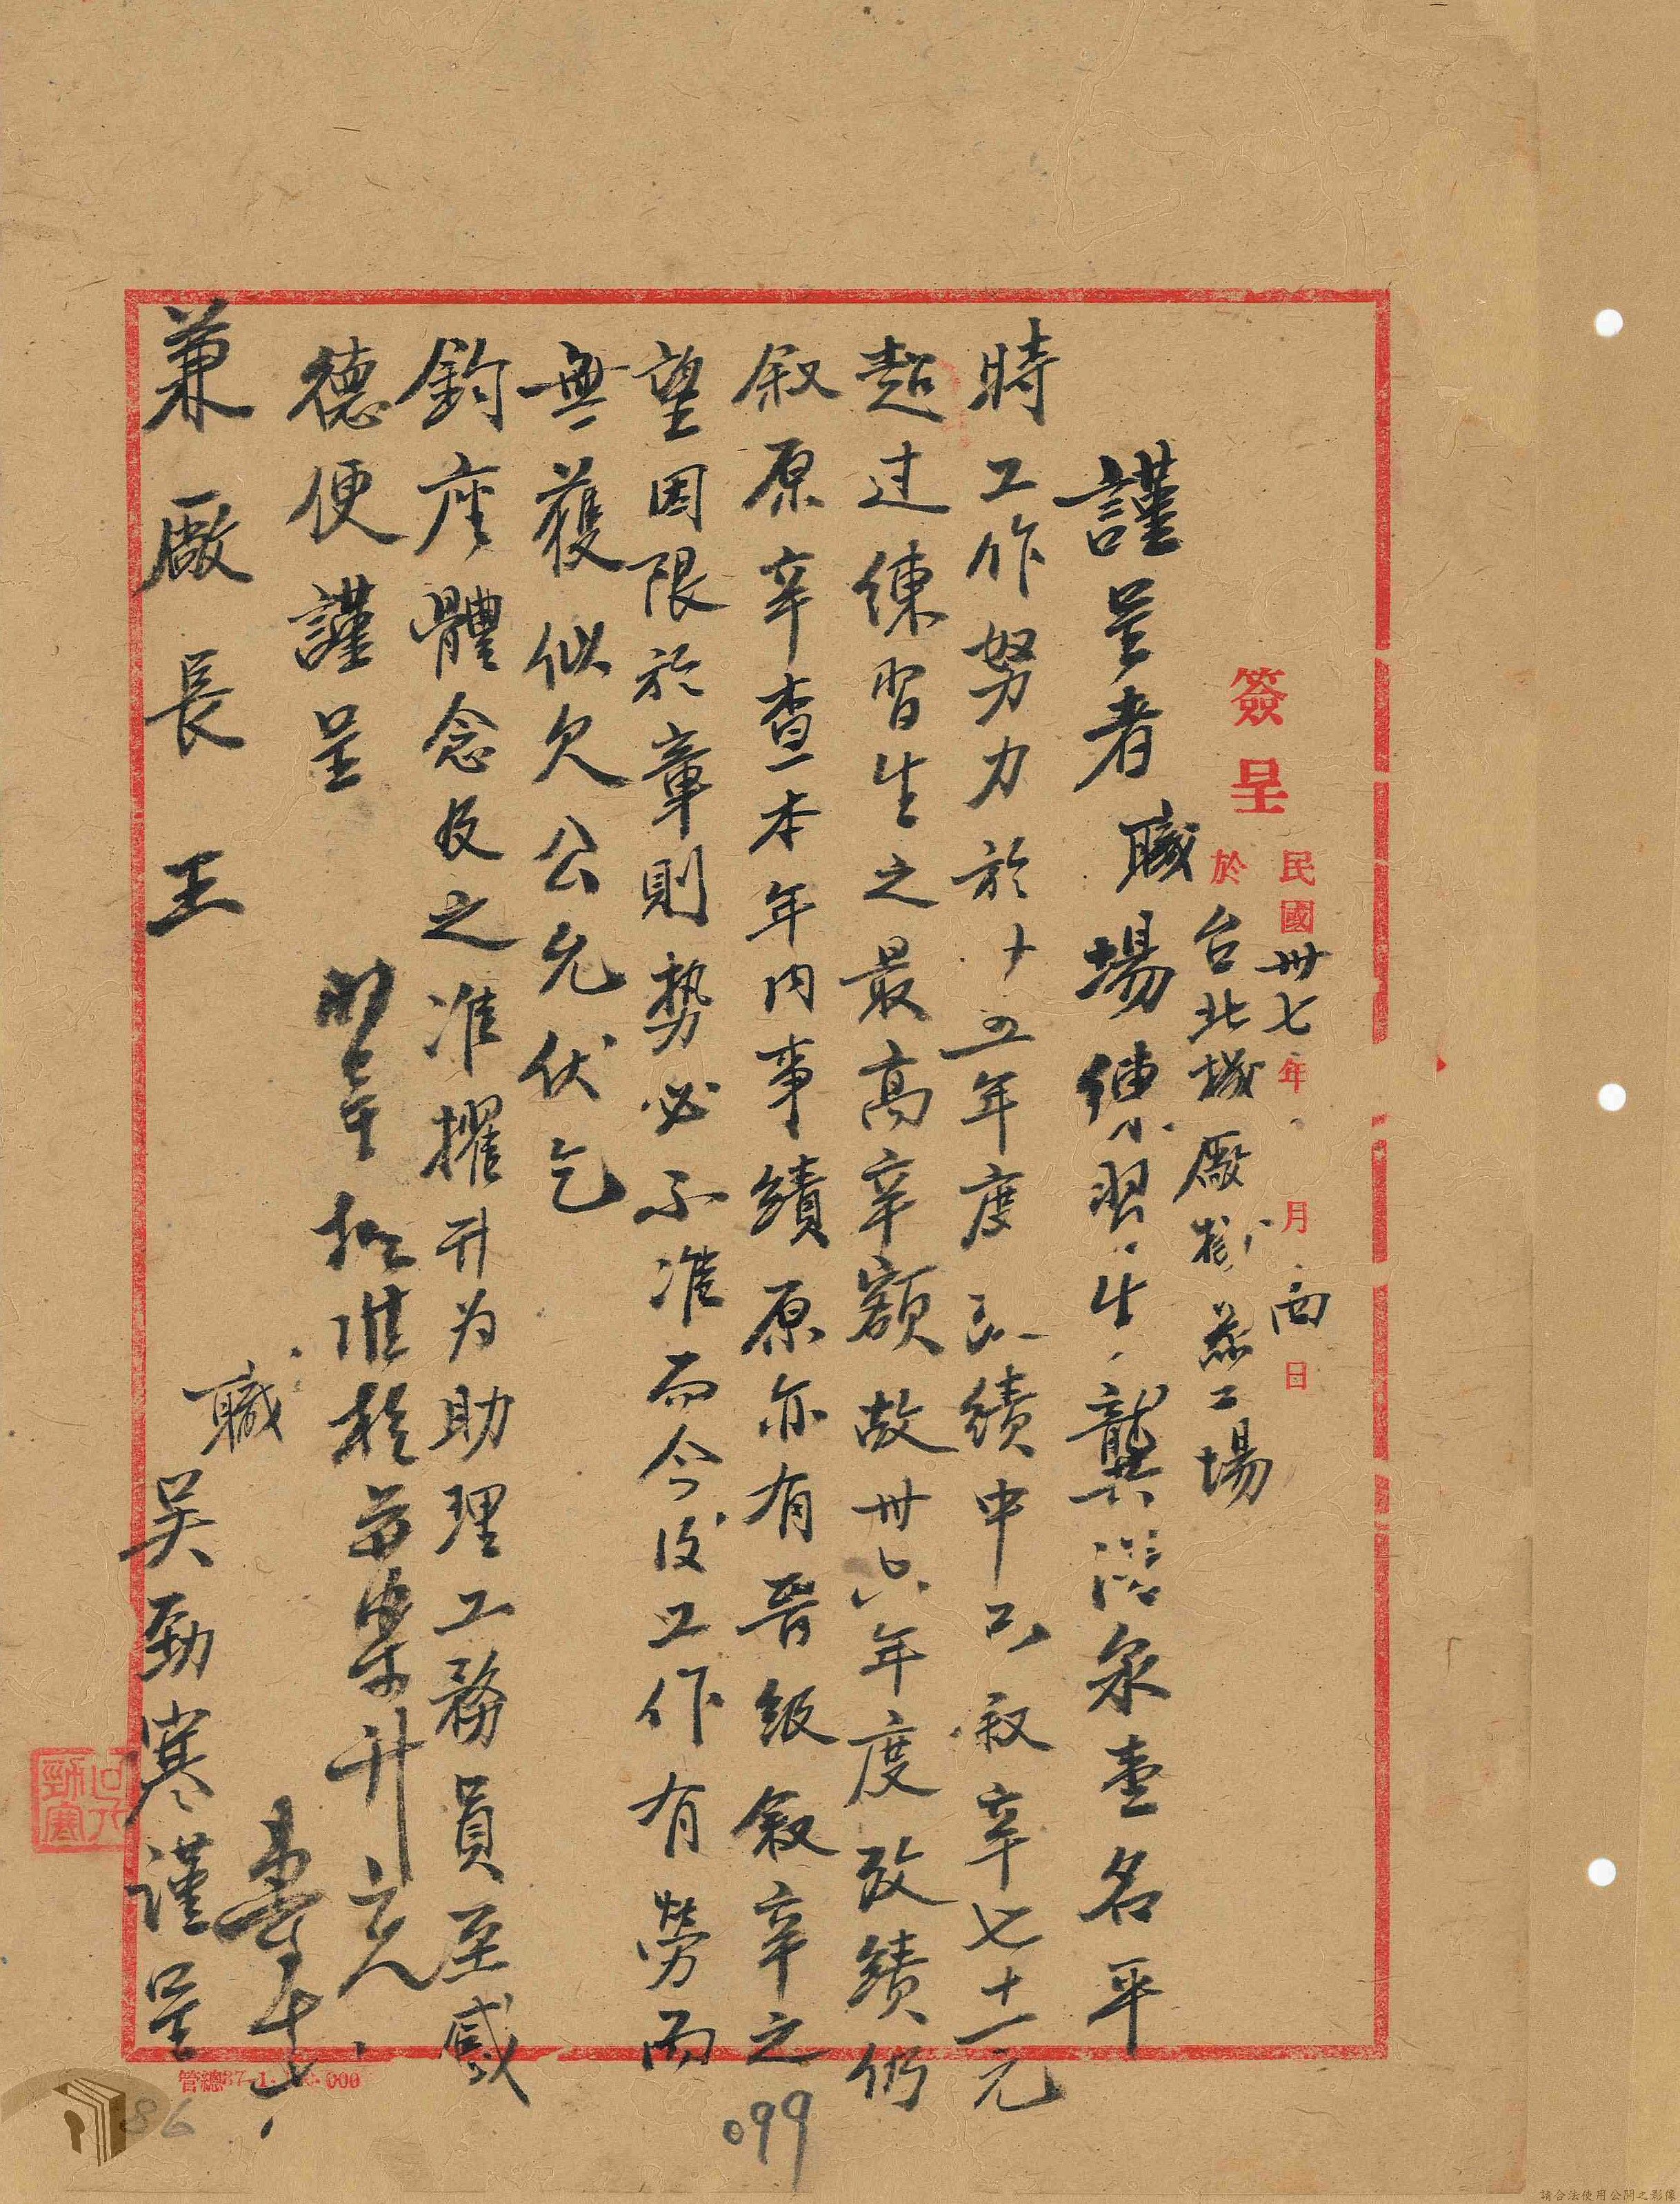 簽呈
民國卅七年 月 日
於台北機廠 工場
謹呈者職場練習生龔 泉壹名平
時工作努力於卅五年度考績中已敘薪七十一元
超过練習生之最高辛額故卅六年度考績仍
叙原辛查本年內事績原亦有晉級叙辛之
望因限於章則勢必不准而今後工作有勞而
無獲似欠公允伏乞
鈞座體念及之准擢升为助理工務員至感
德便謹呈
兼廠長王
職吳勁寒謹呈
吳勁寒
099
86
管總37.1. 000
請合法使用公開之影像